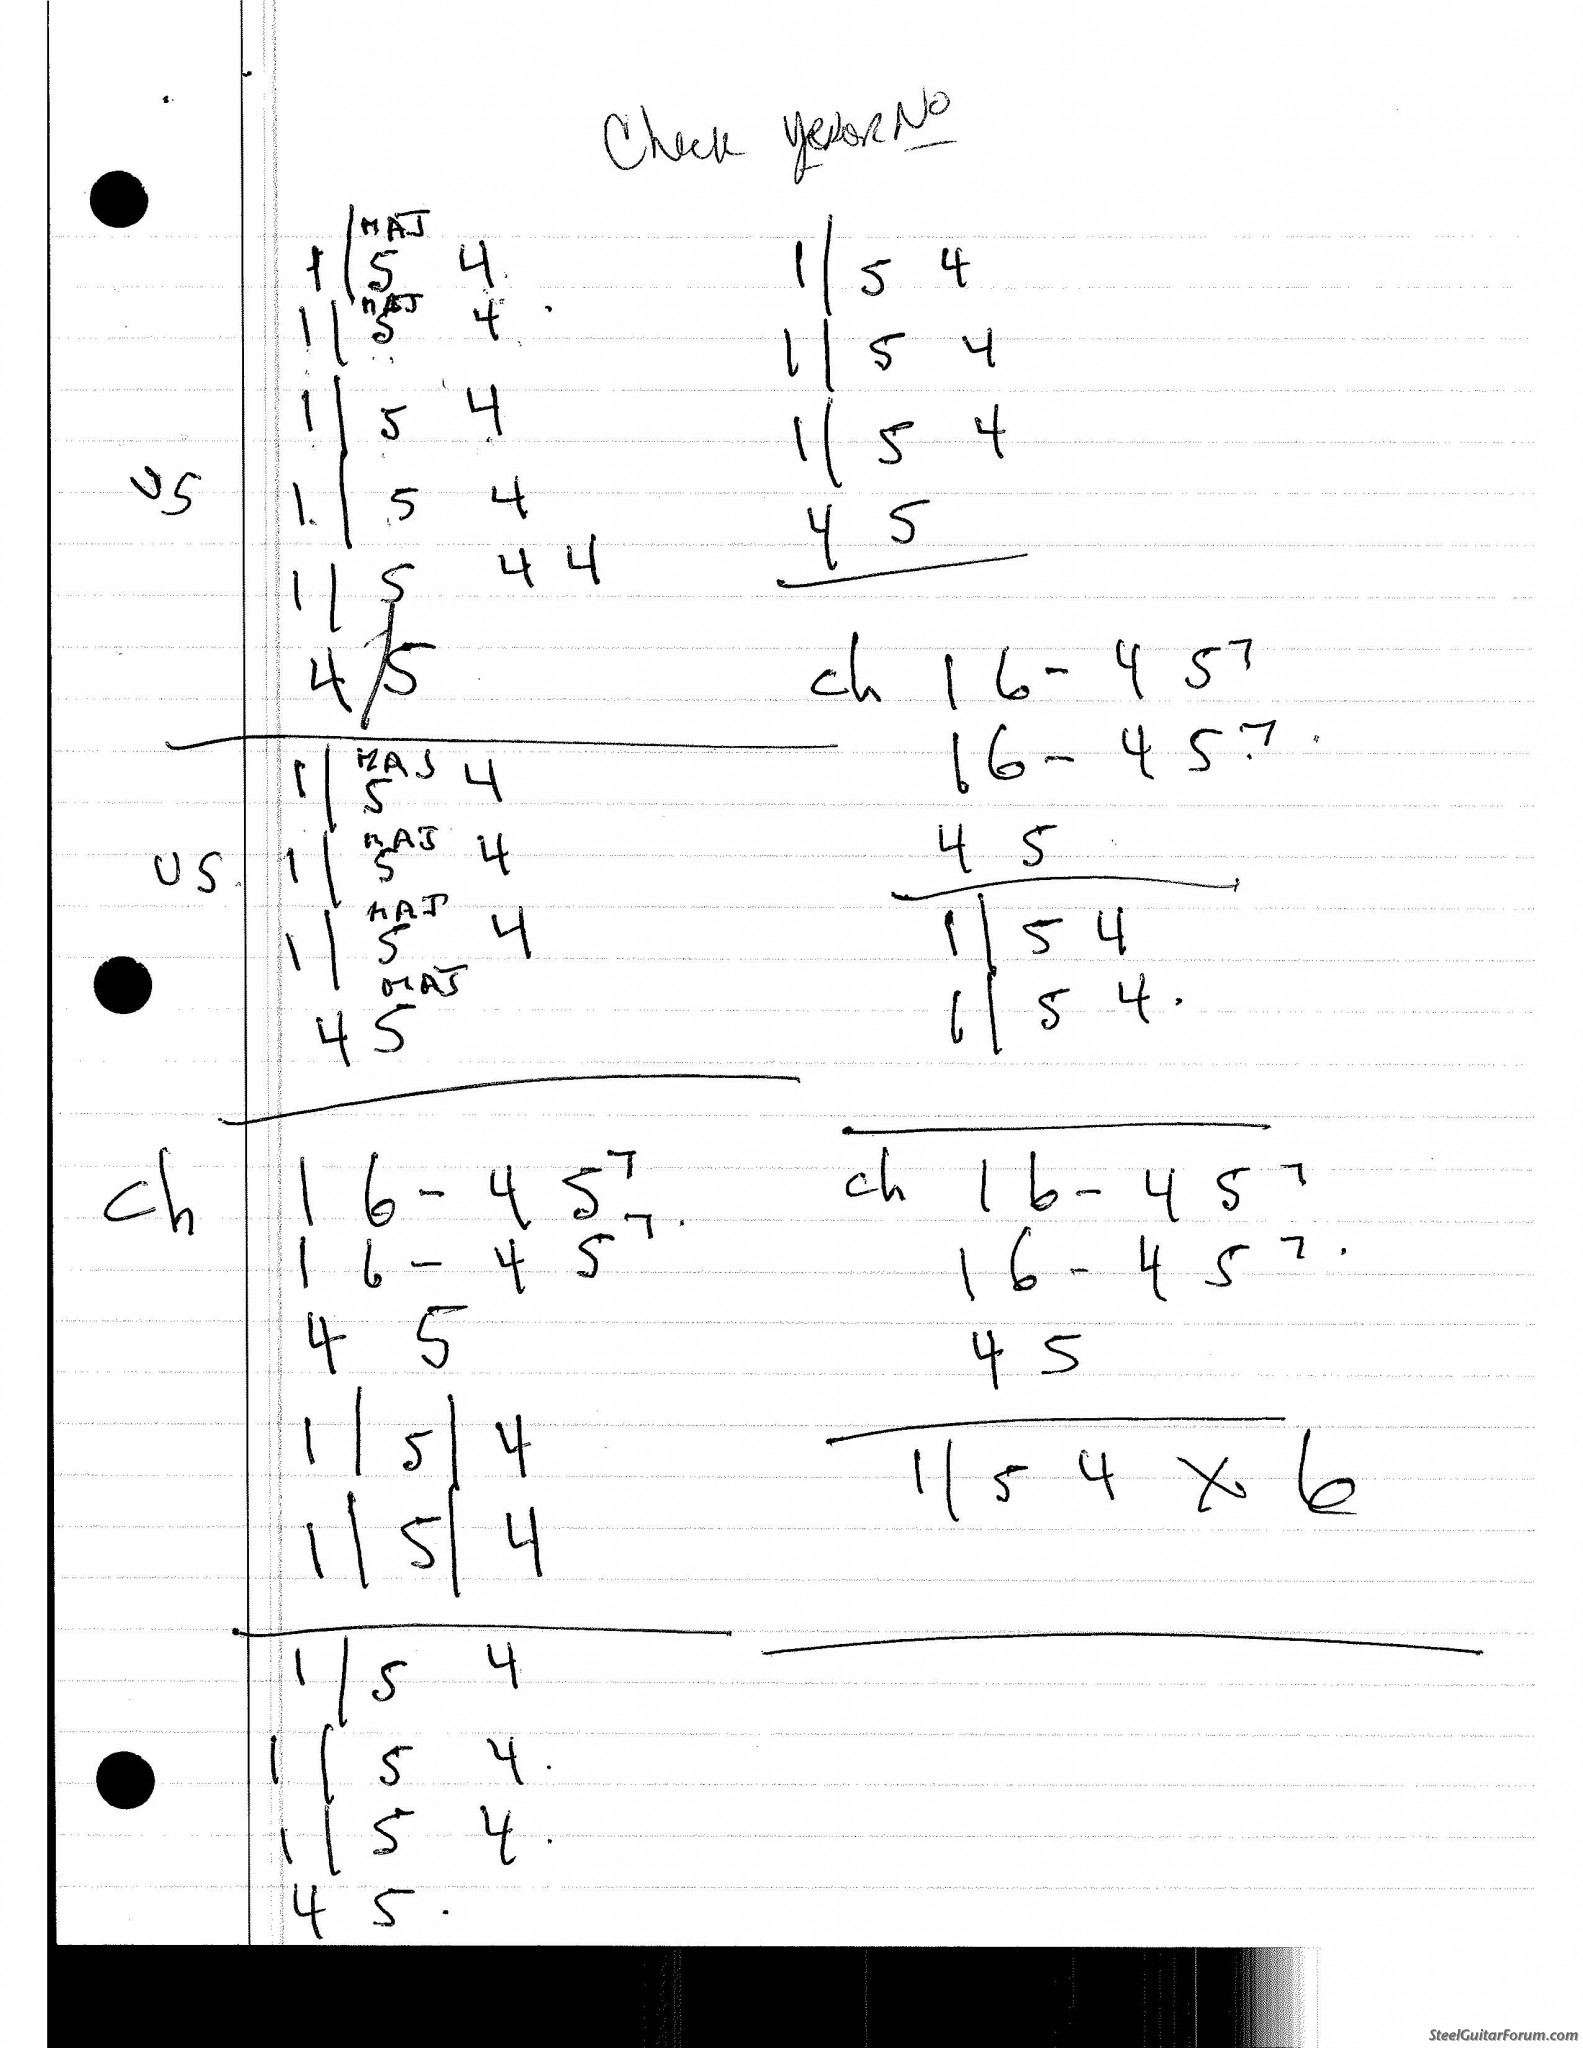 Check yes or No
1 | MAJ
5 4
1 | MAJ
5 4
1 | 5 4
VS 1 | 5 4
1 | 5 4 4
4 / 5
1 | MAJ
5 4
VS 1 | MAJ
5 4
1 | MAJ
5 4
MAJ
4 5
Ch 1 6- 4 5⁷
1 6- 4 5⁷
4 5
1 | 5 | 4
1 | 5 | 4
1 | 5 4
1 | 5 4
1 | 5 4
4 5
1 | 5 4
1 | 5 4
1 | 5 4
4 5
ch 1 6- 4 5⁷
1 6- 4 5⁷
4 5
1 | 5 4
1 | 5 4
ch 1 6- 4 5⁷
1 6- 4 5⁷
4 5
1 | 5 4 x 6
SteelGuitarForum.com